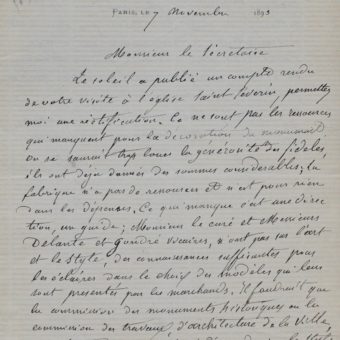 PARIS, LE 7 Novembre 1893
Monsieur le Sécrétaire
Le soleil a publié un compte rendu
de votre visite à l'église Saint Séverin, permettez
moi une réctification. Ce ne sont pas les ressources
qui manquent pour la décoration du monument
On ne saurait trop louer la générosité des fidèles
ils ont déjà donné des sommes considérables; la
fabrique n'a pas de ressources et n'est pour rien
dans les dépenses. Ce qui manque c'est une direc
tion, un guide; Monsieur le curé et Messieurs
Delante et Goudré vicaires, n'ont pas sur l'art
et le style, des connaissances suffisantes pour
les éclairer dans le choix des modèles qui leur
sont présentés par les marchands. Il faudrait que
la commission des monuments historiques ou la
commission des travaux d'architecture de la ville,